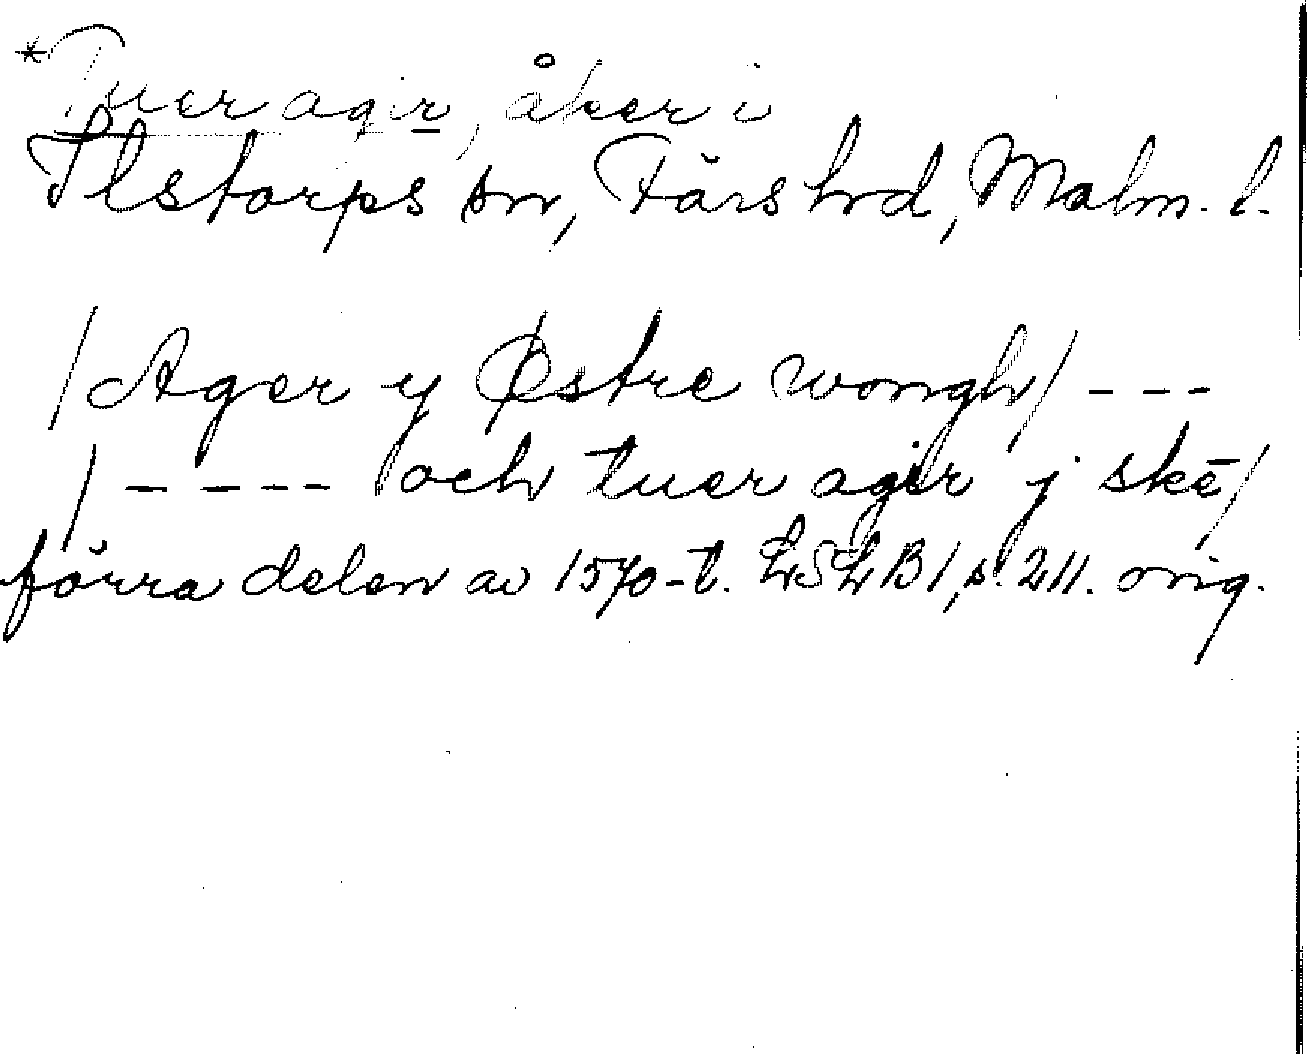 *Tuer agir, åker i
Ilstorps sn, Färs hrd, Malm. l.
/Ager y Østre wongh/ ---
/ ---- och tuer agir j skē/
förra delen av 1570-t. LSLB 1, s. 211. orig.